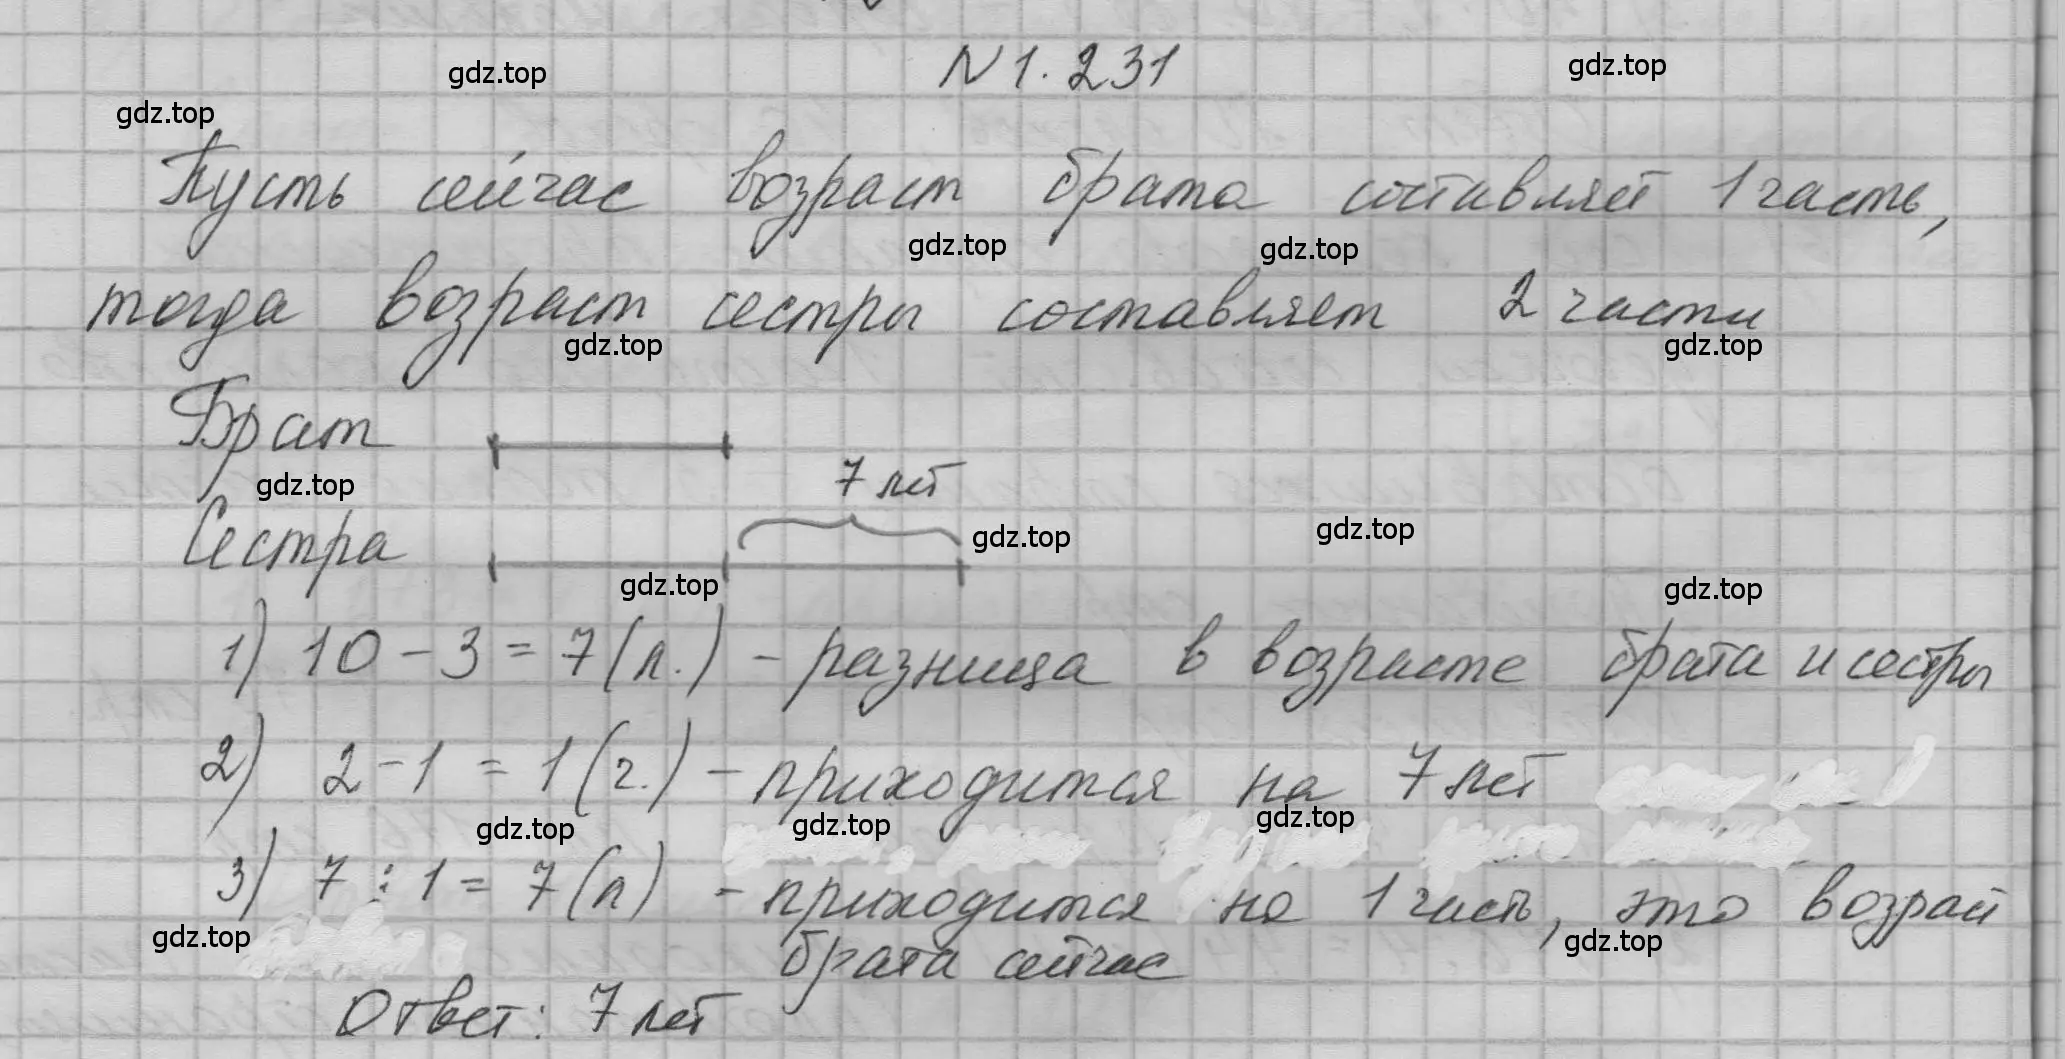 N 1. 231
gdz.top gdz.top
gdz.top
Пусть сейчас возраст брата составляет 1 часть,
gdz.top gdz.top
тогда возраст сестры составляет 2 части
gdz.top gdz.top
Брат
7 лет
gdz.top
Сестра gdz.top gdz.top
gdz.top gdz.top
1) 10 - 3 = 7 (л.) - разница в возрасте брата и сестры
2) 2 - 1 = 1 (ч.) - приходится на 7 лет
gdz.top gdz.top gdz.top
3) 7 : 1 = 7 (л) - приходится на 1 часть, это возраст
gdz.top gdz.top
брата сейчас
Ответ: 7 лет